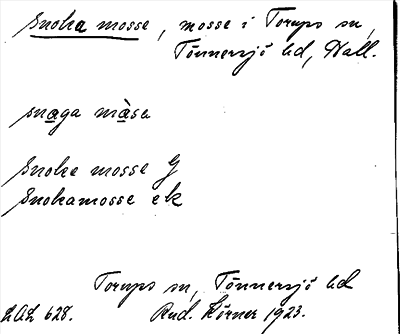 Snoka mosse, mosse i Torups sn,
Tönnersjö hd, Hall.
snaga màsa
Snoke mosse G
Snokamosse ek
Torups sn, Tönnersjö hd
LAL 628. Rud. Körner 1923.